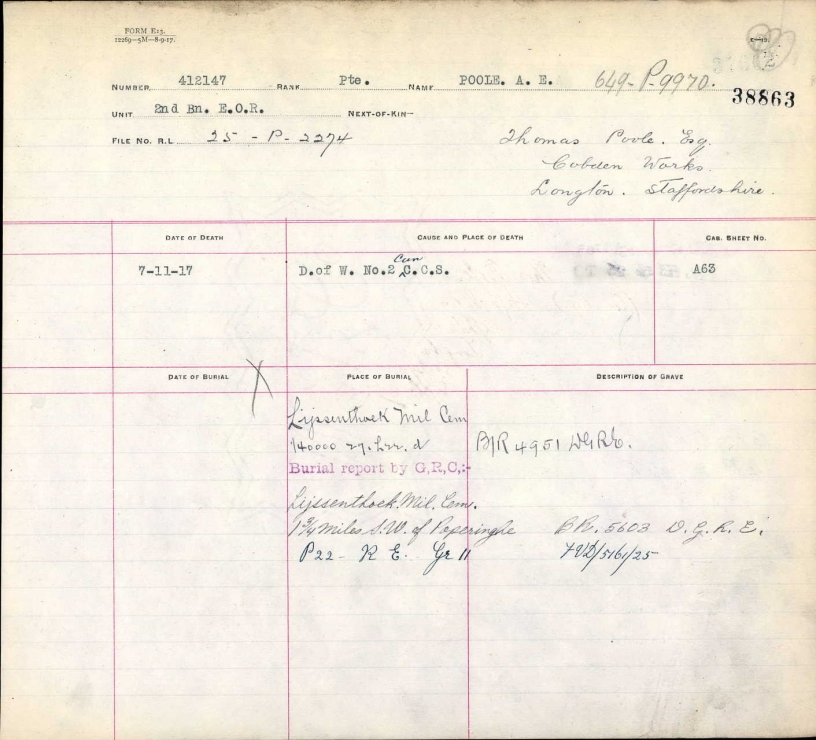 FORM E13.
12269—5M—8-9-17.
NUMBER 412147 RANK Pte. NAME POOLE. A. E. 649-P-9970.
38863
UNIT 2nd Bn. E.O.R. NEXT-OF-KIN—
FILE NO. R.L 25 - P - 2274
Thomas Poole. Esq.
Cobden Works.
Longton. Staffordshire.
DATE OF DEATH CAUSE AND PLACE OF DEATH CAS. SHEET NO.
7-11-17 D.of W. No.2 Can C.C.S. A63
DATE OF BURIAL PLACE OF BURIAL DESCRIPTION OF GRAVE
Lijssenthoek Mil Cem
1/40000 27. L22. d B/R 4951 DGRE.
Burial report by G.R.O.:-
Lijssenthoek. Mil. Cem.
1 3/4 Miles S.W. of Poperinghe BR. 5603 D.G.R.E.
P22 - R E. Gr 11